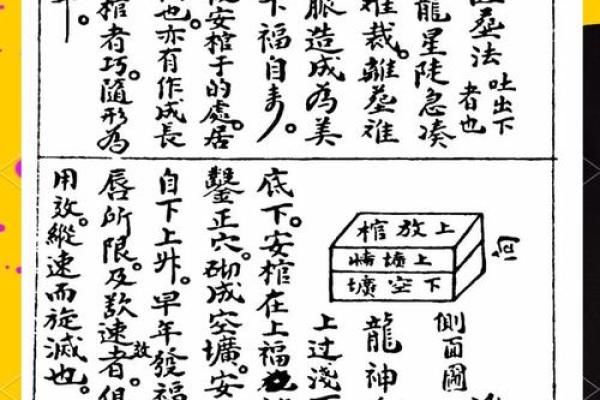 塟法 吐出下者也
龍星陡急湊
难裁。離塟难
脈造成為美
下福自来。
安棺于的處。居
也。亦有作成長
棺者巧。隨形為
上放棺
上壙
下空壙
側面圖
龍神
上过淺
底下。安棺在上福
鑿正穴。砌成空壙。安
自下上升。早年發福
唇所限。及歎速效者。俱
用效縱速而旋滅也。